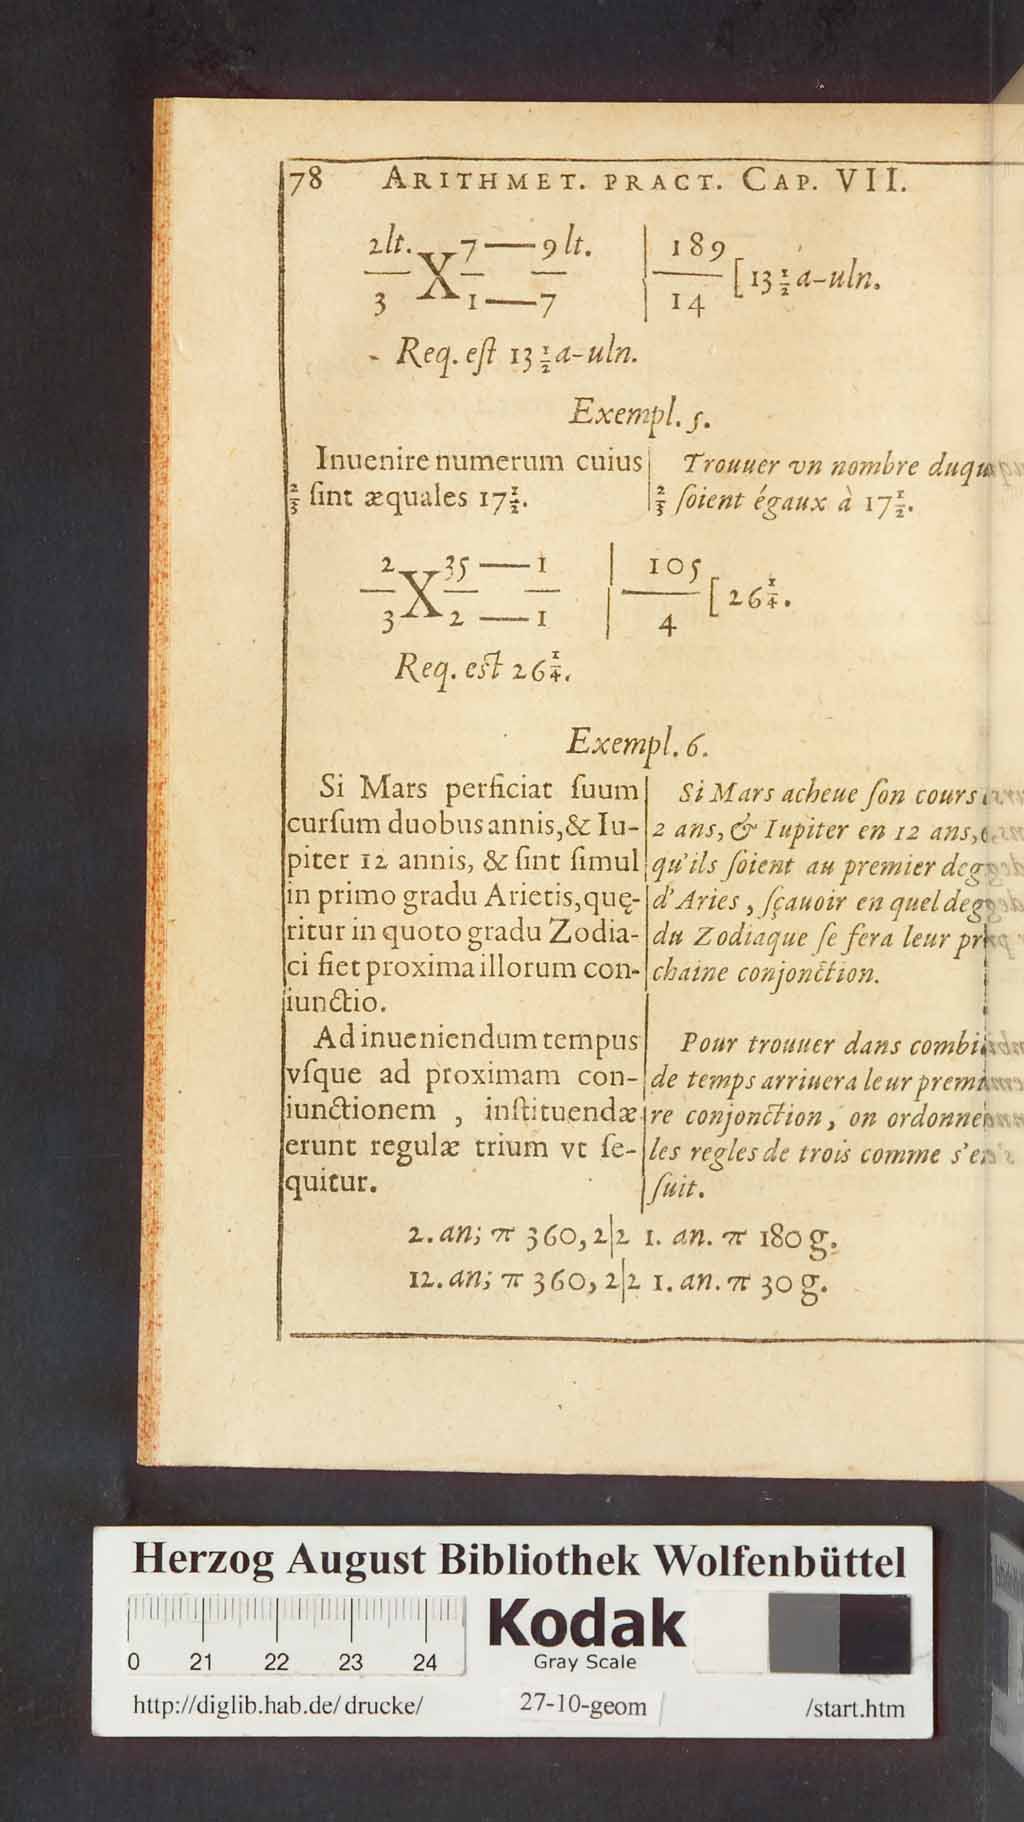 78 ARITHMET. PRACT. CAP. VII.
2lt. 7 — 9 lt. | 189
— X — — | — [13 1/2 a-uln.
3 1 — 7 | 14
Req. eſt 13 1/2 a-uln.
Exempl. 5.
Inuenire numerum cuius
2/3 ſint æquales 17 1/2.
Trouuer vn nombre duquel
2/3 ſoient égaux à 17 1/2.
2 35 — 1 | 105
— X — — | — [26 1/4.
3 2 — 1 | 4
Req. eſt 26 1/4.
Exempl. 6.
Si Mars perficiat ſuum
curſum duobus annis, & Iu-
piter 12 annis, & ſint ſimul
in primo gradu Arietis, quę-
ritur in quoto gradu Zodia-
ci fiet proxima illorum con-
iunctio.
Ad inueniendum tempus
vſque ad proximam con-
iunctionem , inſtituendæ
erunt regulæ trium vt ſe-
quitur.
Si Mars acheue ſon cours
2 ans, & Iupiter en 12 ans,
qu'ils ſoient au premier
d'Aries , ſçauoir en quel
du Zodiaque ſe fera leur
chaine conjonction.
Pour trouuer dans
de temps arriuera leur
re conjonction, on
les regles de trois comme
ſuit.
2. an; π 360, 2|2 1. an. π 180 g.
12. an; π 360, 2|2 1. an. π 30 g.
Herzog August Bibliothek Wolfenbüttel
0 21 22 23 24
Kodak
Gray Scale
http://diglib.hab.de/drucke/ 27-10-geom /start.htm